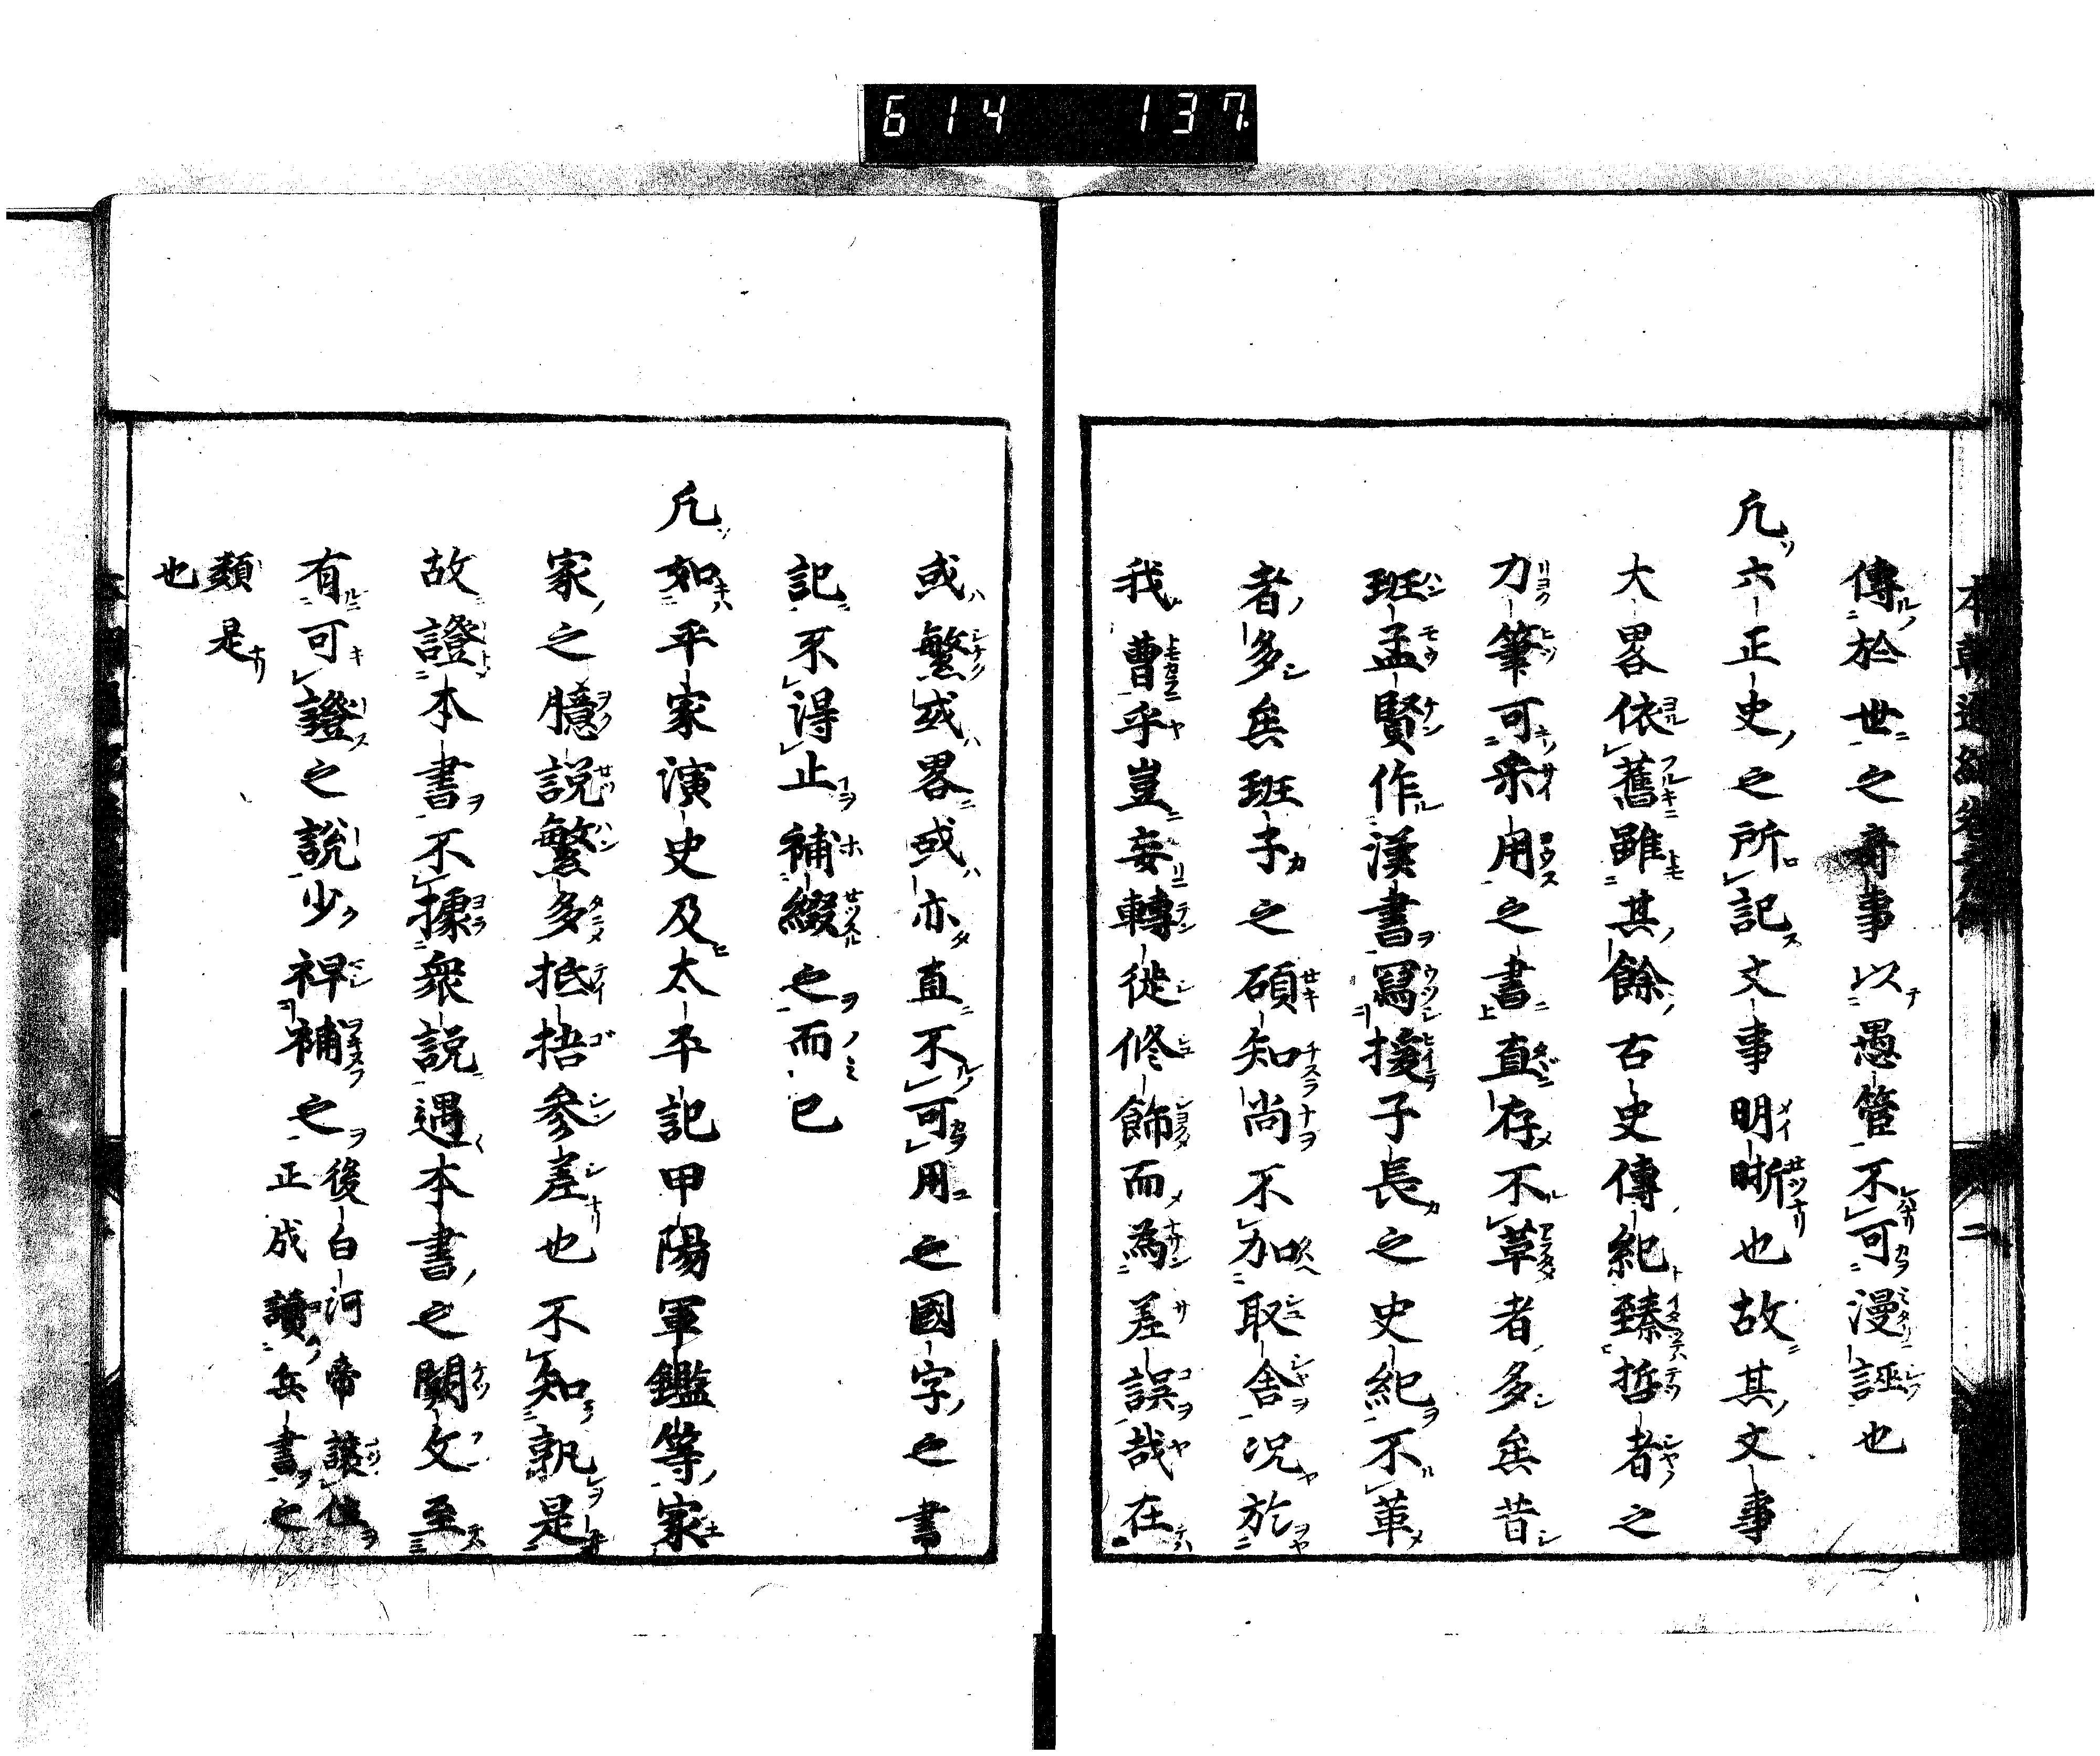 614 137
傳於世之奇事以愚管不可漫誣也
凢六正史之所記文事明晣也故其文事
大畧依舊雖其餘古史傳紀臻哲者之
力筆可采用之書直存不革者多矣昔
班孟賢作漢書寫掞子長之史紀不革
者多矣班子之碩知尚不加取舎况於
我曹乎豈妄轉徙修飾而為差誤哉在
或繁或畧或亦直不可用之國字之書
記不得止補綴之而已
凢如平家演史及太平記甲陽軍鑑等家
家之臆說繁多抵捂參差也不知孰是
故證本書不據衆説遇本書之闕文至
有可證之說少裨補之後白河帝讓位
正成讀兵書之
類是
也